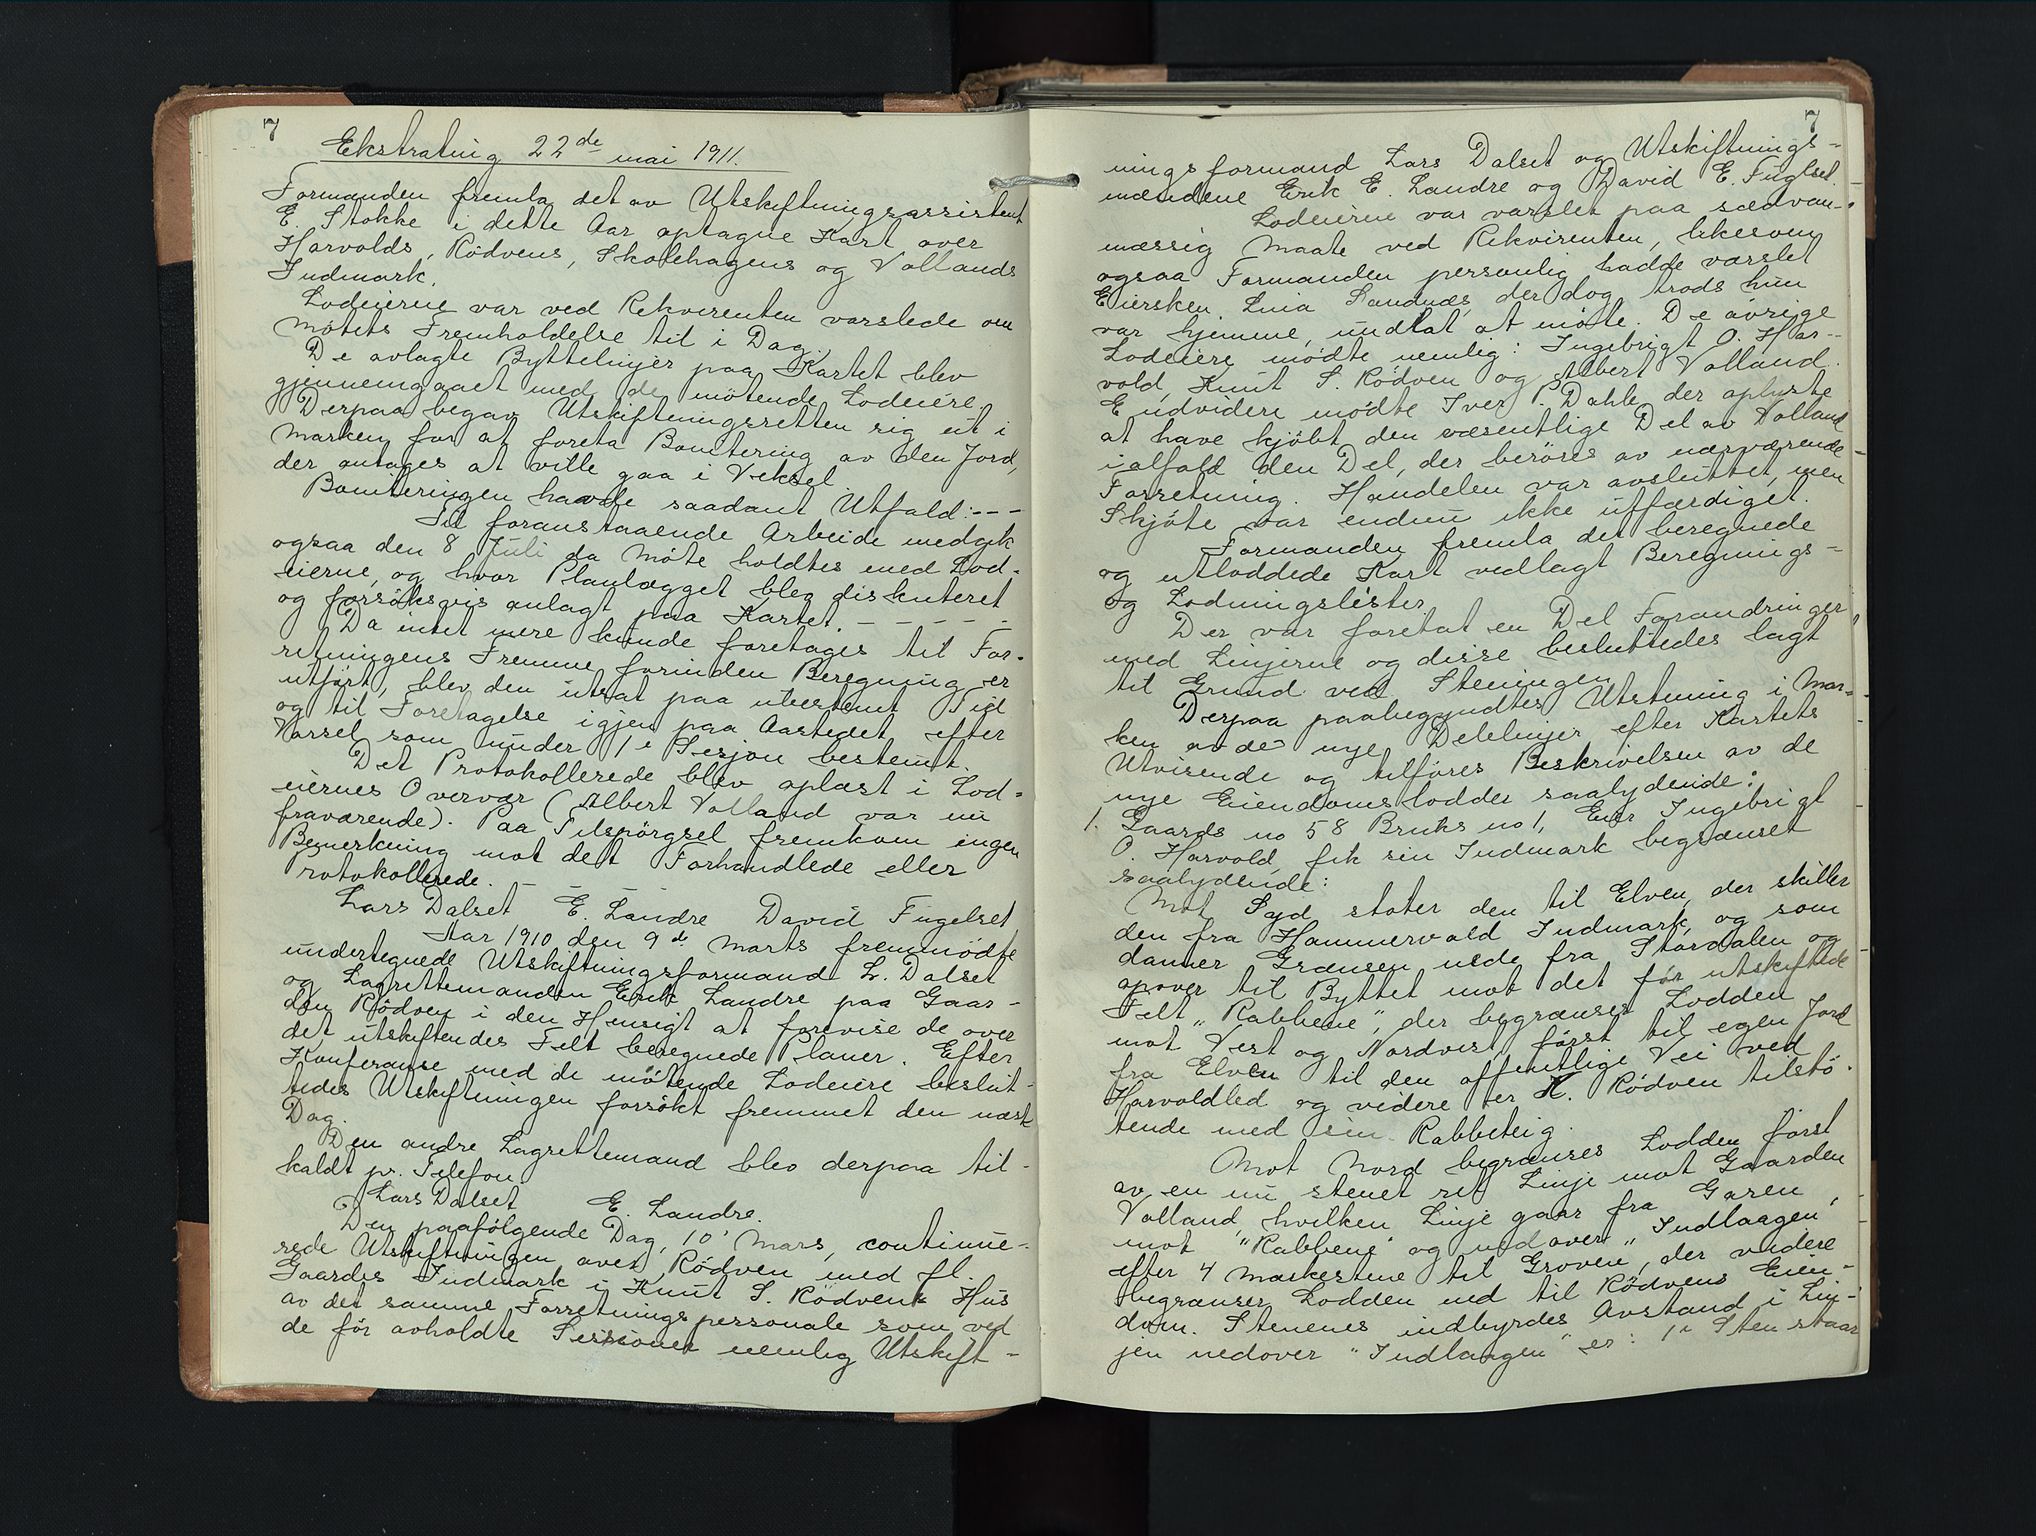 7
Ekstrating 22de mai 1911.
Formanden fremla det av Utskiftningsassistent
E. Stokke i dette Aar optagne Kart over
Harvolds, Rödvens, Skolehagens og Vollands
Indmark.
Lodeierne var ved Rekvirenten varslede om
Mötets Fremholdelse til i Dag.
De avlagte Byttelinjer paa Kartet blev
gjennemgaaet med de mötende Lodeiere.
Derpaa begav Utskiftningsretten sig ut i
Marken for at foreta Bonitering av den Jord,
der antages at ville gaa i Veksel.
Boniteringen havde saadant Utfald: - - -
Til foranstaaende Arbeide medgik
ogsaa den 8 Juli da Möte holdtes med Lod-
eierne, og hvor Planlægget blev diskuteret
og forsöksvis anlagt paa Kartet. - - - - -
Da intet mere kunde foretages til For-
retningens Fremme forinden Beregning er
utfört, blev den utsat paa ubestemt Tid
og til Foretagelse igjen paa Aastedet efter
Varsel som under 1e Sesjon bestemt.
Det Protokollerede blev oplæst i Lod-
eiernes Overvær (Albert Volland var nu
fraværende). Paa Tilspörgsel fremkom ingen
Bemerkning mot det Forhandlede eller
Protokollerede. - - -
Lars Dalset E. Landre David Fugelset
Aar 1910 den 9de Marts fremmödte
undertegnede Utskiftningsformand L. Dalset
og Lagrettemanden Erik Landre paa Gaar-
den Rödven i den Hensigt at forevise de over
det utskiftendes Felt beregnede Planer. Efter
Konferanse med de mötende Lodeiere beslut-
tedes Utskiftningen forsökt fremmet den næste
Dag.
Den andre Lagrettemand blev derpaa til-
kaldt pr. Telefon.
Lars Dalset E. Landre.
Den paafölgende Dag, 10' Mars, continue-
rede Utskiftningen over Rödven med fl.
Gaardes Indmark i Knut S. Rödvens Hus
av det samme Forretningspersonale som ved
de för avholdte Sessioner nemlig Utskift-
7
ningsformand Lars Dalset og Utskiftnings-
mændene Erik E. Landre og David E. Fuglset.
Lodeierne var varslet paa sædvan-
mæssig Maate ved Rekvirenten, likesom
ogsaa Formanden personlig hadde varslet
Eiersken Lina Sandnæs, der dog trods hun
var hjemme, undlat at möte. De övrige
Lodeiere mödte nemlig: Ingebrigt O. Har-
vold, Knut S. Rödven og Albert Volland.
Endvidere mödte Iver P. Dahle, der oplyste
at have kjöbt den væsentlige Del av Volland
ialfald den Del, der beröres av nærværende
Forretning. Handelen var avsluttet, men
Skjöte var endnu ikke utfærdiget.
Formanden fremla det beregnede
og utloddede Kart vedlagt Beregnings-
og Lodningslister.
Der var foretat en Del Forandringer
med Linjerne og disse besluttedes lagt
til Grund ved Steningen.
Derpaa paabegyndtes Utstening i Mar-
ken av de nye Delelinjer efter Kartets
Utvisende og tilföres Beskrivelsen av de
nye Eiendomslodder saalydende:
1. Gaards no 58 Bruks no 1, Eier Ingebrigt
O. Harvold, fik sin Indmark begrænset
saalydende:
Mot Syd stöter den til Elven, der skiller
den fra Hammervold Indmark, og som
danner Grænsen nede fra Stordalen og
opover til Byttet mot det för utskiftede
Felt „Rabbene", der begrænser Lodden
mot Vest og Nordvest, först til egen Jord
fra Elven til den offentlige Vei ved
Harvoldled og videre ter K. Rödven tilstö-
tende med sin Rabbeteig.
Mot Nord begrænses Lodden först
av en nu stenet ret Linje mot Gaarden
Volland, hvilken Linje gaar fra Garen
mot "Rabbene" og nedover „Indlaagen",
efter 4 Merkestene til Groven, der videre
begrænser Lodden ned til Rödvens Eien-
dom. Stenenes indbyrdes Avstand i Lin-
jen nedover "Indlaagen" er: 1e Sten staar